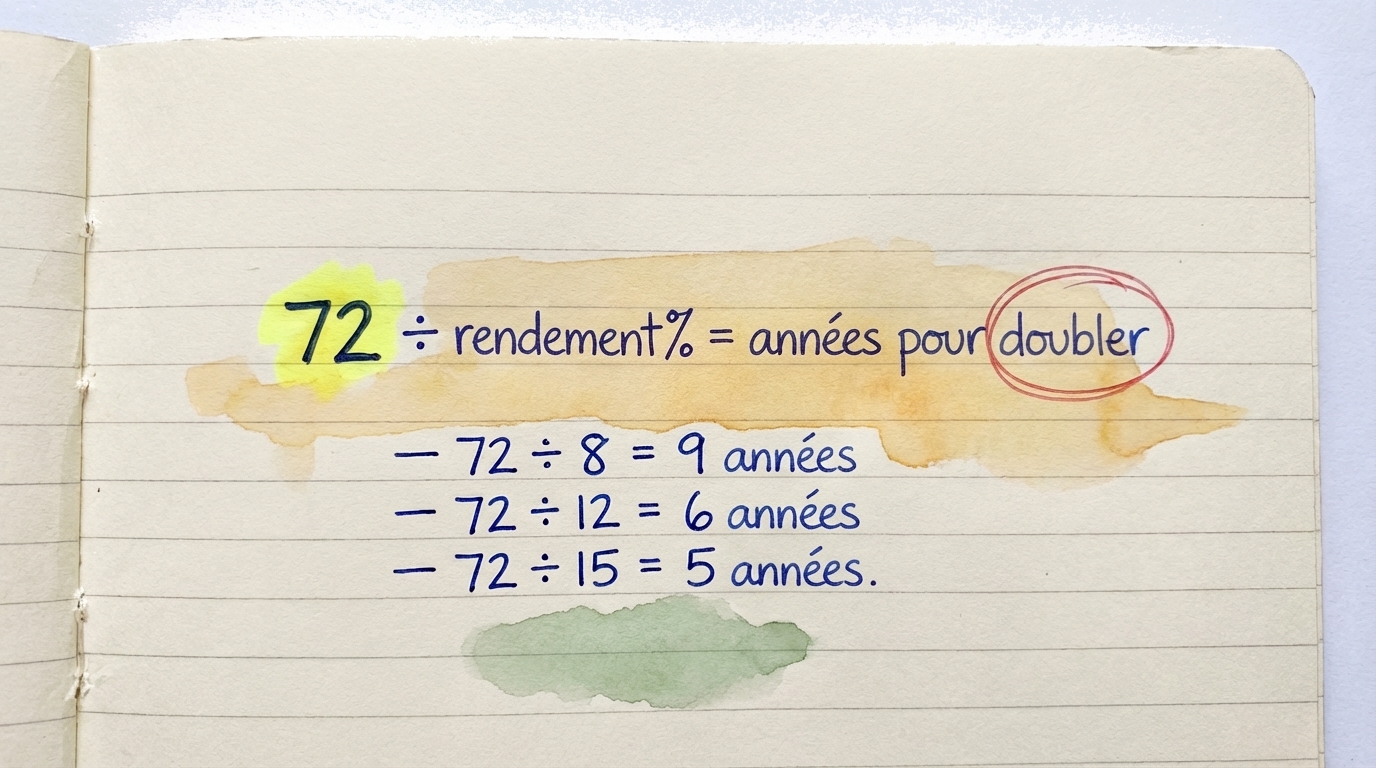 72 ÷ rendement% = années pour doubler
— 72 ÷ 8 = 9 années
— 72 ÷ 12 = 6 années
— 72 ÷ 15 = 5 années.